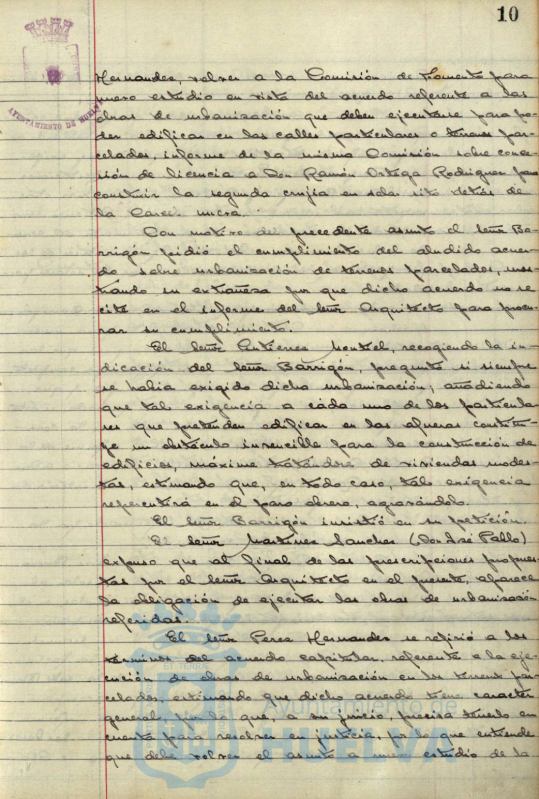 10
AYUNTAMIENTO DE HUELVA
Hernandez, volver a la Comisión de Fomento para
nuevo estudio en vista del acuerdo referente a las
obras de urbanización que deben ejecutarse para po-
der edificar en las calles particulares o terrenos par-
celados, informe de la misma Comisión sobre conce-
sión de licencia a Don Ramón Ortega Rodriguez para
construir la segunda crujia en solar sito detrás de
la Carcel
Con motivo del precedente asunto el señor Ba-
rrigón pidió el cumplimiento del aludido acuer-
do sobre urbanización de terrenos parcelados, mos-
trando su extrañeza por que dicho acuerdo no se
cite en el informe del señor Arquitecto para procu-
rar su cumplimiento.
El señor Gutierrez Montiel, recogiendo la in-
dicación del señor Barrigón, pregunta si siempre
se habia exigido dicha urbanización, añadiendo
que tal exigencia a cada uno de los particula-
res que pretenden edificar en las afueras constitu-
ye un obstáculo invencible para la construcción de
edificios, máxime tratándose de viviendas modes-
tas, estimando que, en todo caso, tal exigencia
repercutirá en el paro obrero, agravándolo.
El señor Barrigón insistió en su petición.
El señor Martinez Sanchez (Don José Pablo)
expuso que al final de las prescripciones propues-
tas por el señor Arquitecto en el presente, aparece
la obligación de ejecutar las obras de urbanización
referidas.
El señor Perez Hernandez se refirió a los
terminos del acuerdo capitular, referente a la eje-
cución de obras de urbanización en los terrenos par-
celados, estimando que dicho acuerdo tiene caracter
general, por lo que, a su juicio, precisa tenerlo en
cuenta para resolver en justicia, por lo que entiende
que debe volver el asunto a nuevo estudio de la
Ayuntamiento de
HUELVA